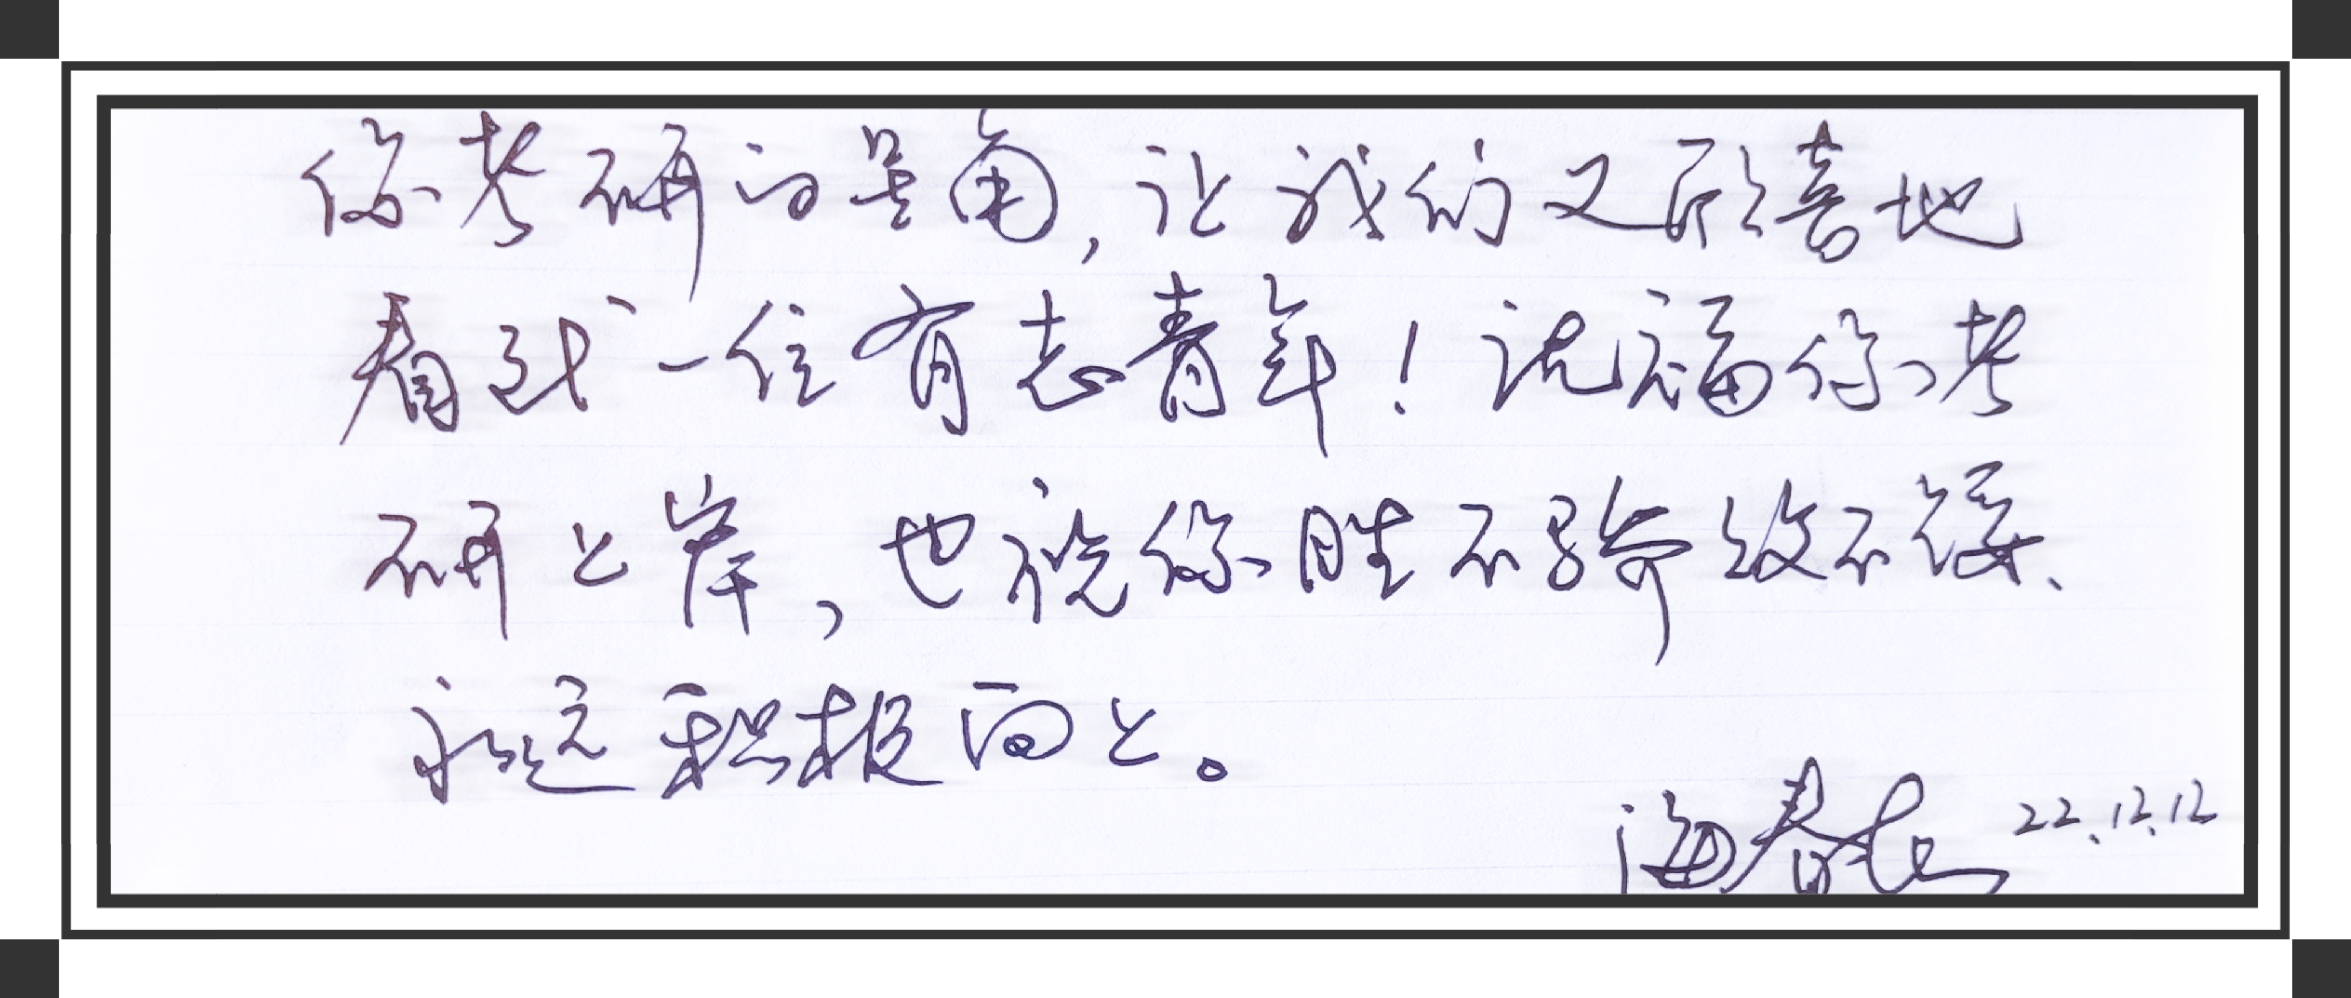 你考研的是角,让我们又欣喜地
看到一位有志青年!祝福你考
研上岸,也祝你胜不骄败不馁、
永远积极向上。
海春 22.12.12